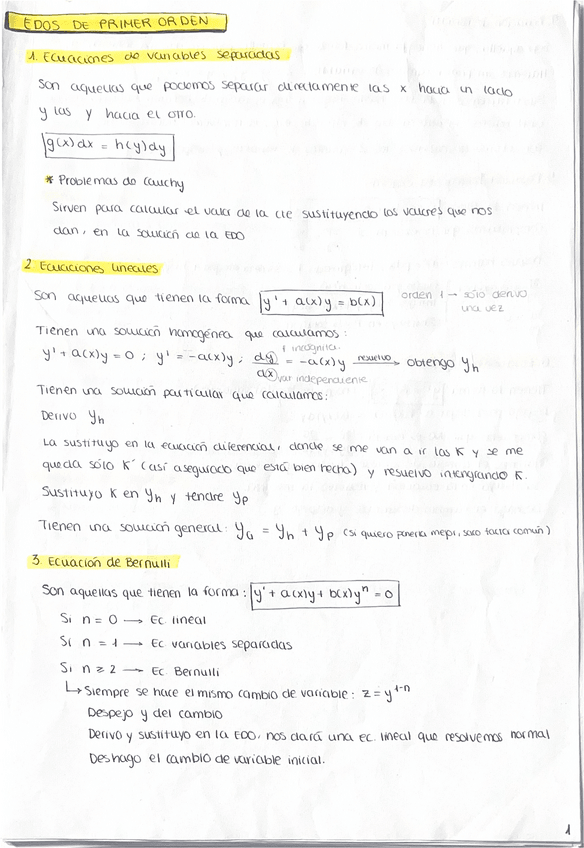 EDOS DE PRIMER ORDEN
1. Ecuaciones de variables separadas
Son aquellas que podemos separar directamente las x hacia un lado
y las y hacia el otro.
g(x)dx = h(y)dy
* Problemas de Cauchy
Sirven para calcular el valor de la cte sustituyendo los valores que nos
dan, en la solución de la EDO
2 Ecuaciones lineales
Son aquellas que tienen la forma y' + a(x)y = b(x) orden 1 → sólo derivo
una vez
Tienen una solución homogénea que calculamos:
y' + a(x)y = 0 ; y' = -a(x)y ; dy/dx = -a(x)y resuelvo → obtengo yh
↑ incógnita.
var independiente
Tienen una solución particular que calculamos:
Derivo yh
La sustituyo en la ecuación diferencial, donde se me van a ir las K y se me
queda sólo K' (así aseguro que está bien hecha) y resuelvo integrando K.
Sustituyo K en yh y tendré yp
Tienen una solución general: yG = yh + yp (si quiero ponerla mejor, saco factor común)
3. Ecuación de Bernulli
Son aquellas que tienen la forma: y' + a(x)y + b(x)yⁿ = 0
Si n = 0 → Ec. lineal
Si n = 1 → Ec variables separadas
Si n ≥ 2 → Ec. Bernulli
↳ Siempre se hace el mismo cambio de variable: z = y¹⁻ⁿ
Despejo y del cambio
Derivo y sustituyo en la EDO, nos dará una ec. lineal que resolvemos normal
Deshago el cambio de variable inicial.
1